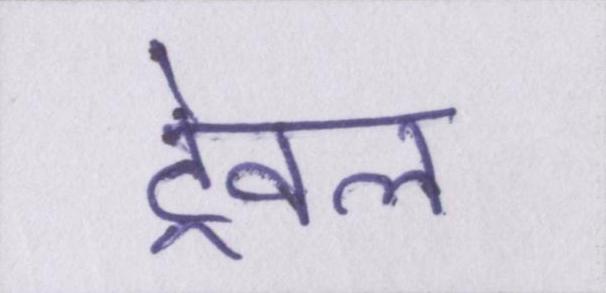 ट्रेवल